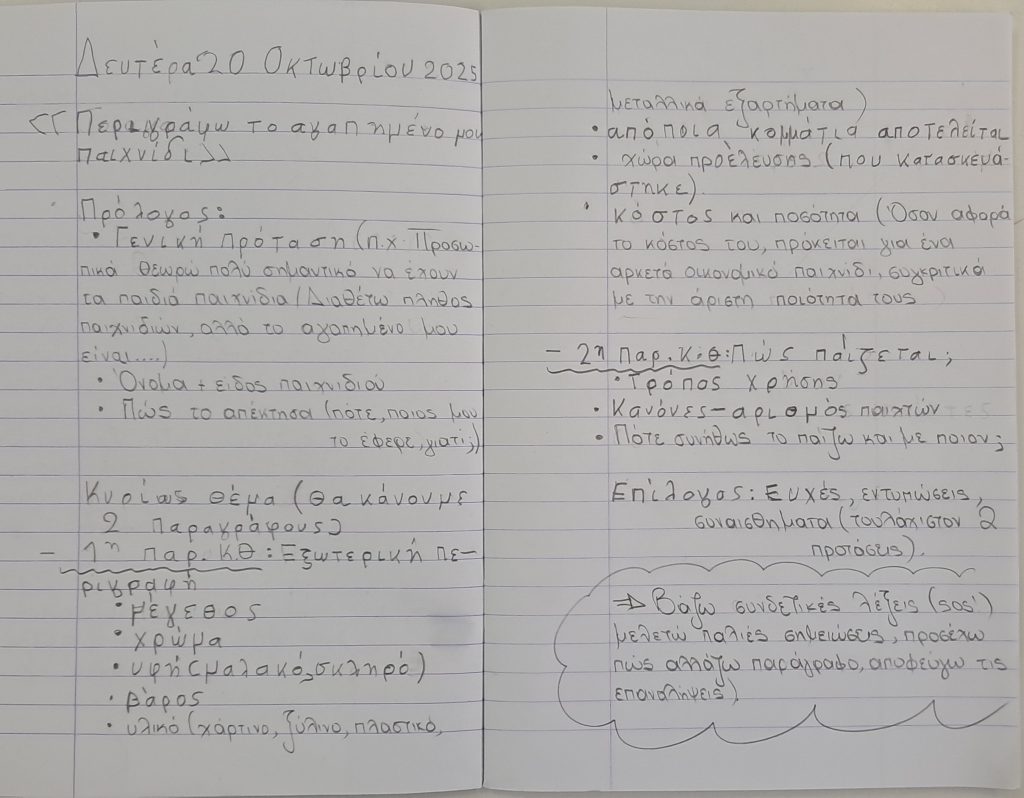 Δευτέρα 20 Οκτωβρίου 2025
<<Περιγράφω το αγαπημένο μου
παιχνίδι>>
Πρόλογος:
• Γενική πρόταση (π.χ Προσω-
πικά θεωρώ πολύ σημαντικό να έχουν
τα παιδιά παιχνίδια/Διαθέτω πλήθος
παιχνιδιών, αλλά το αγαπημένο μου
είναι....)
• Όνομα + ειδος παιχνιδιού
• Πώς το απέκτησα (πότε, ποιος μου
το έφερε, γιατί;)
Κυρίως θέμα (θα κάνουμε
2 παραγράφους)
- 1η παρ. Κ.Θ: Εξωτερική πε-
ριγραφή
• μέγεθος
• χρώμα
• υφή (μαλακό, σκληρό)
• βάρος
• υλικό (χάρτινο, ξύλινο, πλαστικό,
μεταλλικά εξαρτήματα)
• από ποια κομμάτια αποτελείται
• χώρα προέλευσης (που κατασκευά-
στηκε).
• κόστος και ποσότητα (Όσον αφορά
το κόστος του, πρόκειται για ένα
αρκετά οικονομικό παιχνίδι, συγκριτικά
με την άριστη ποιότητα τους
- 2η παρ. Κ.Θ: Πώς παίζεται;
• Τρόπος χρήσης
• Κανόνες - αριθμός παιχτών
• Πότε συνήθως το παίζω και με ποιον;
Επίλογος: Ευχές, εντυπώσεις,
συναισθηματα (τουλάχιστον 2
προτάσεις).
⇒ Βάζω συνδετικές λέξεις (sos!)
μελετώ παλιές σημειώσεις, προσέχω
πώς αλλάζω παράγραφο, αποφεύγω τις
επαναλήψεις)